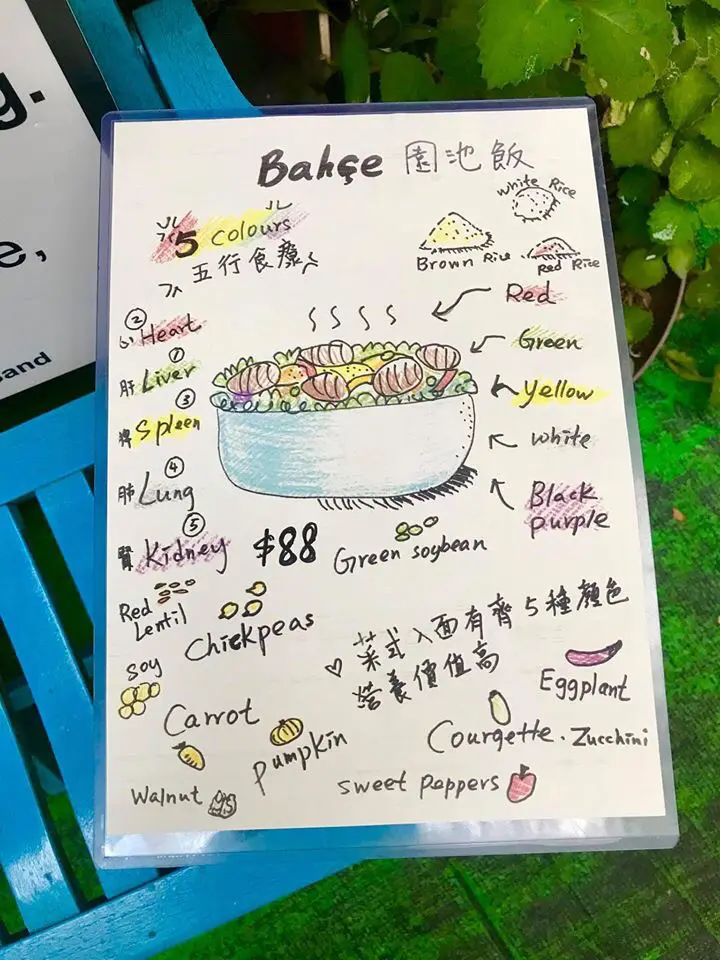 g.
e,
sand
Bahçe 園池飯
5 colours
五行食療
White Rice
Brown Rice
Red Rice
② 心 Heart
① 肝 Liver
③ 脾 Spleen
④ 肺 Lung
⑤ 腎 Kidney
Red
Green
yellow
white
Black
purple
$88
Green soybean
Red
Lentil
Chickpeas
菜式入面有齊5種顏色
營養價值高
soy
Carrot
Pumpkin
Eggplant
Courgette. Zucchini
Walnut
sweet peppers